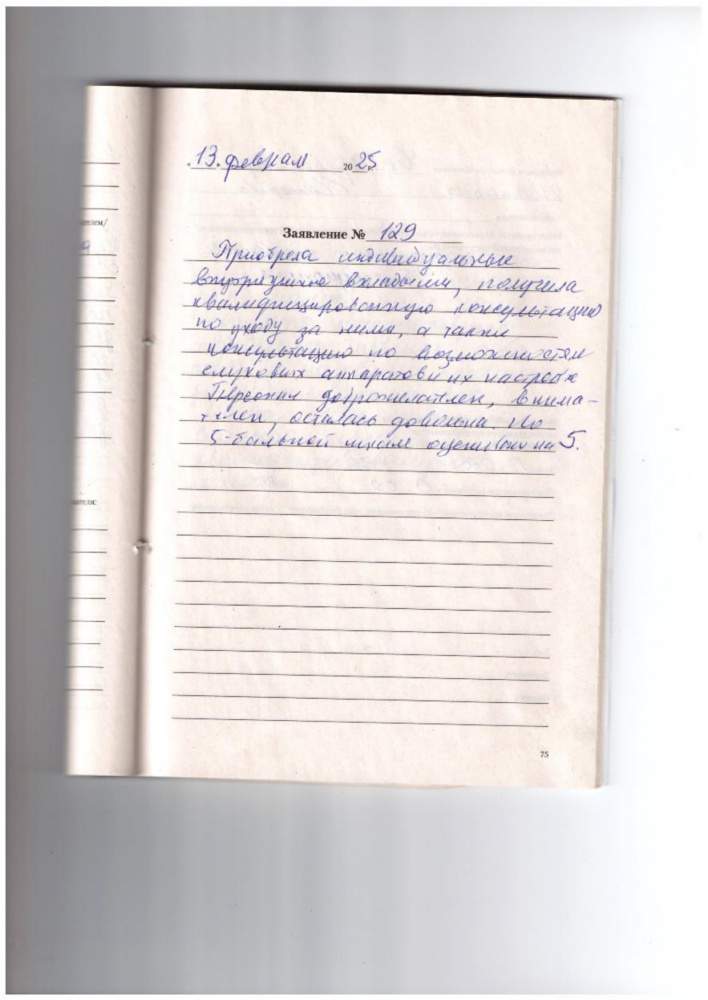 13 февраля 2025
Заявление № 129
Приобрела индивидуальные
внутриушные вкладыши, получила
квалифицированную консультацию
по уходу за ними, а также
консультацию по возможностям
слуховых аппаратов и их настройке
Персонал доброжелателен, внима-
телен, осталась довольна. По
5-бальной шкале оцениваю на 5.
75